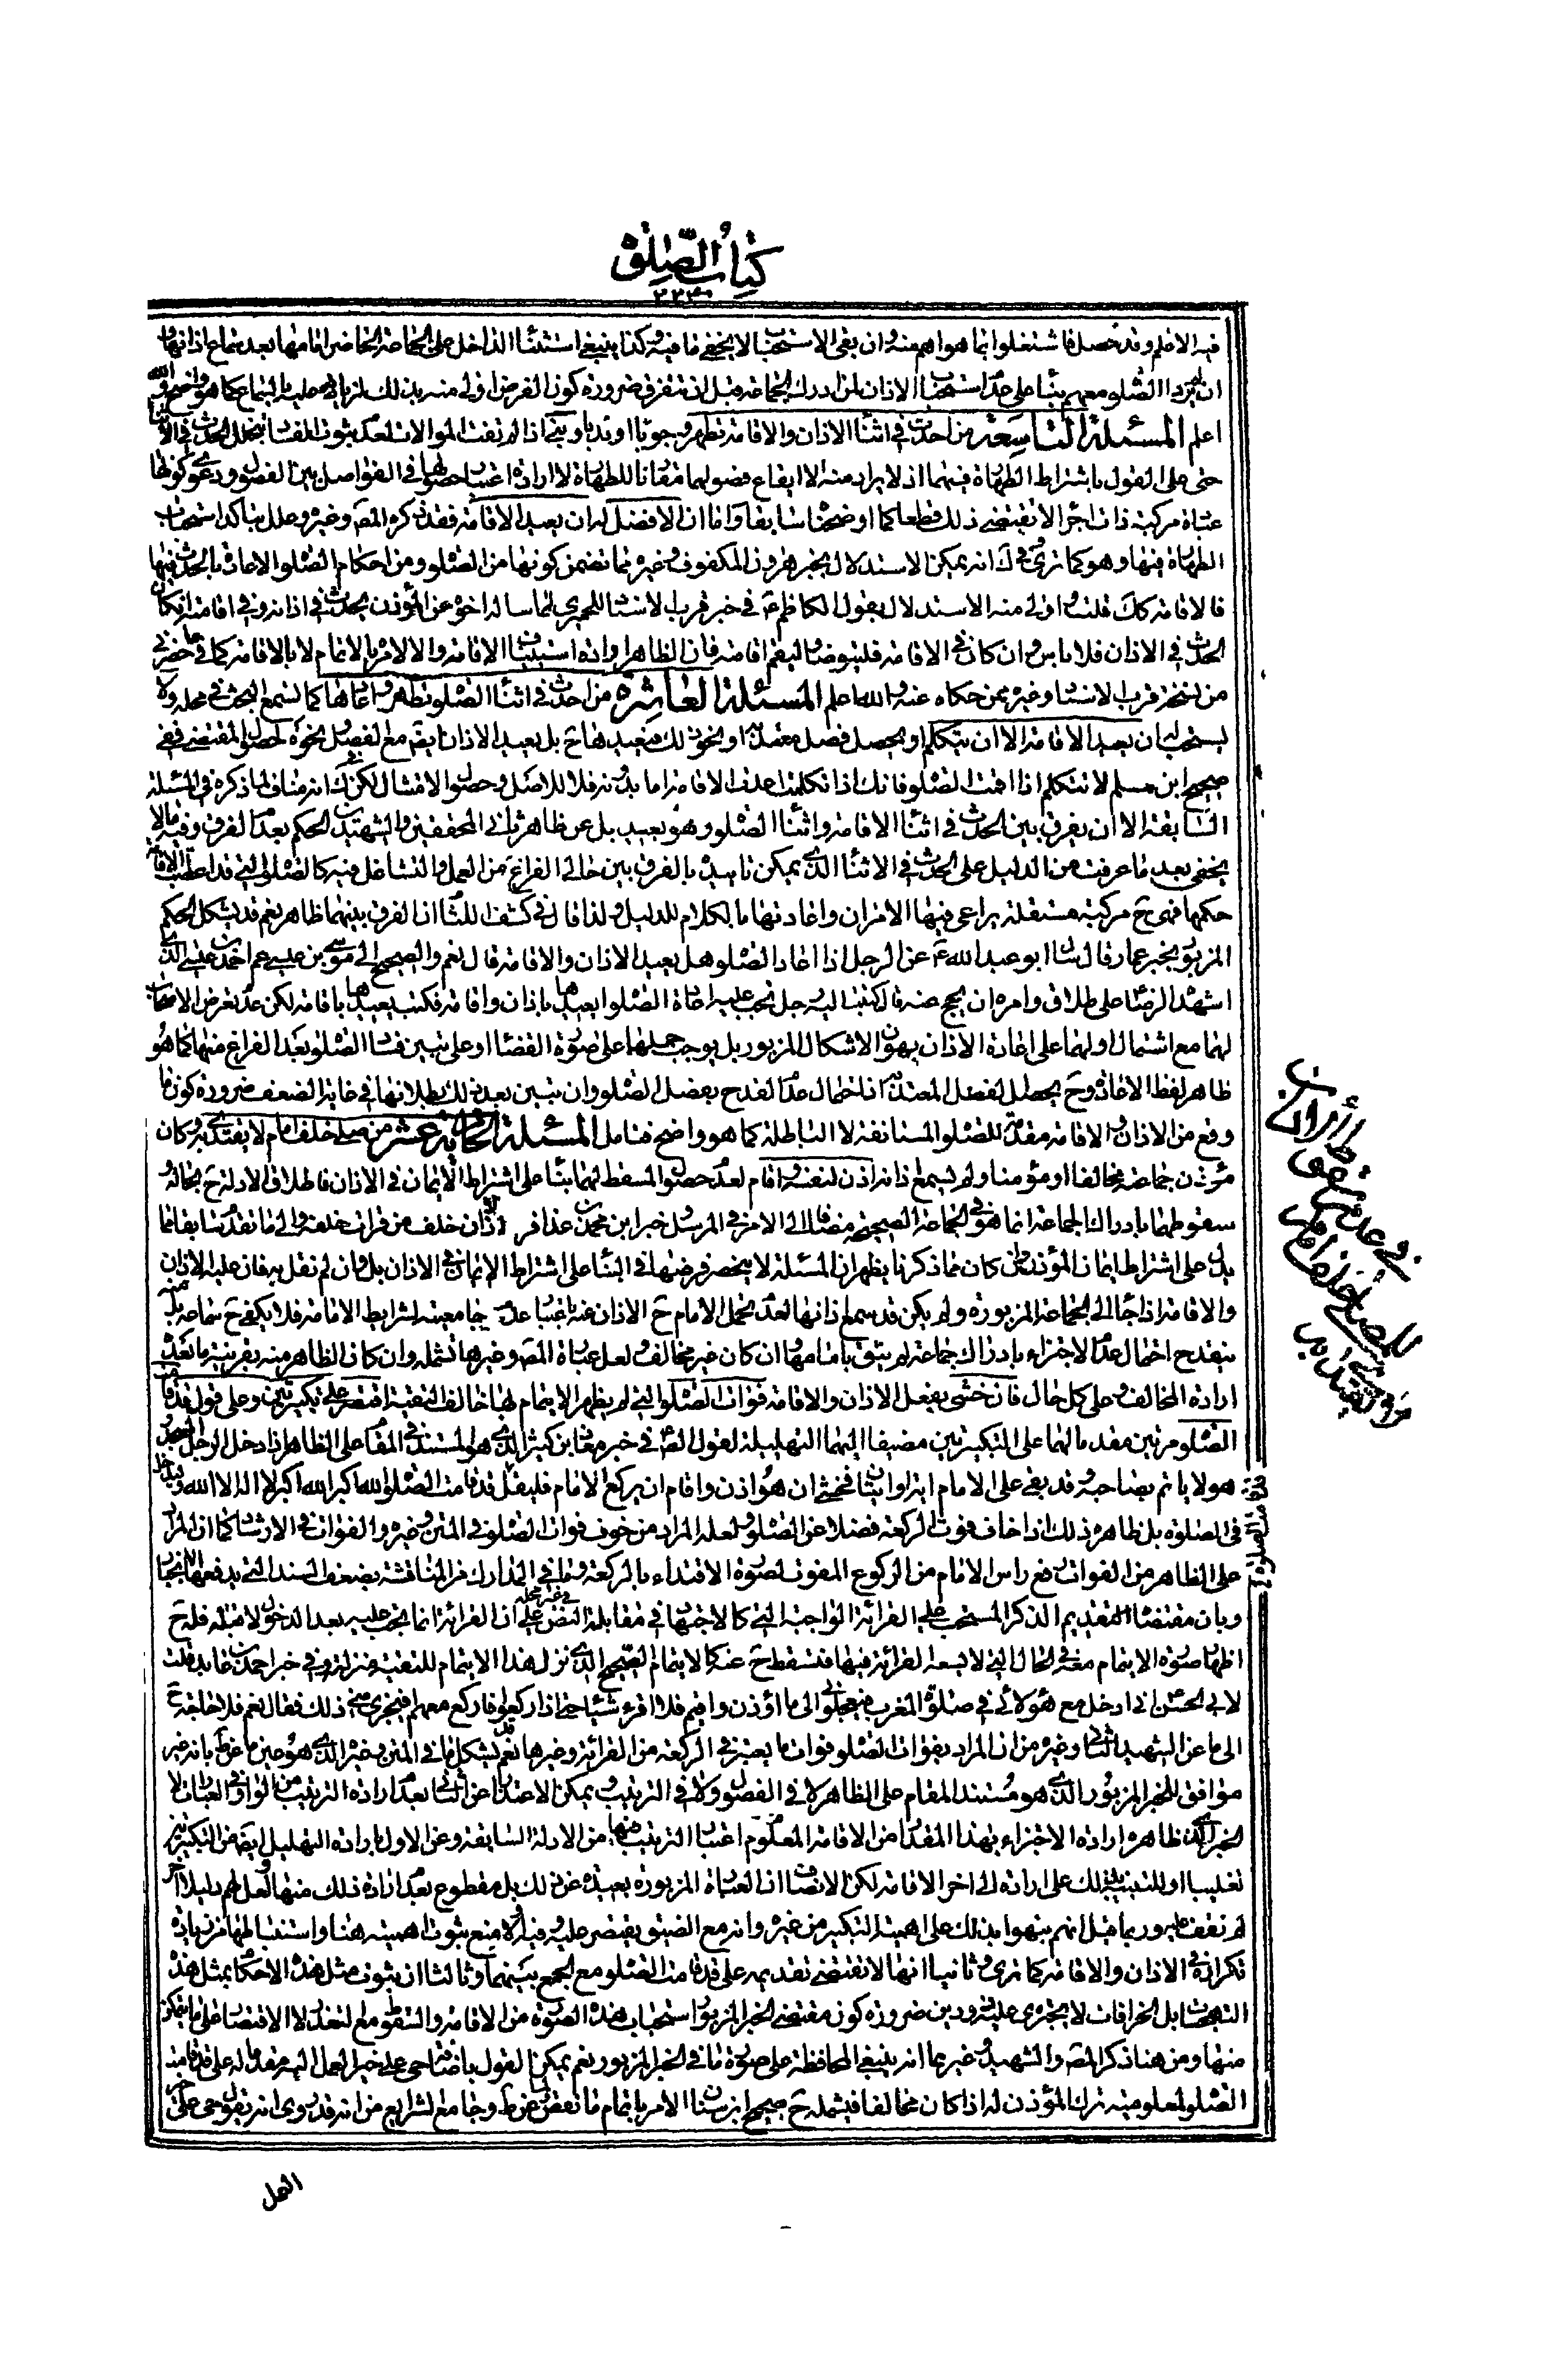 كتاب الصلوة
٢٣٠
فيه الاعلم وقد حصل فاشتغلوا بما هو اهم منه وان بقى الاستحباب لا يخفى ما فيه وكذا ينبغي استثناء الداخل على الجماعة الحاضر اقامتها بعد سماع اذانها
ان لم يرد الصلو معهم بناء على عدم استحباب الاذان لمن ادرك الجماعة قبل ان تتفرق ضرورة كون الفرض اولى منه بذلك لزيادته عليه بالسماع كما هو واضح والله
اعلم المسئلة التاسعة من احدث في اثناء الاذان والاقامة تطهر وجوبا او ندبا وبنى اذا لم تفت الموالات لعدم ثبوت الفساد بتخلل الحدث في الاثناء
حتى على القول باشتراط الطهارة فيهما اذ لا يراد منه الا ايقاع فصولهما مقارنا للطهارة لا ارادة اعتبار حصولها في الفواصل بين الفصول ودعوى كونها
عبارة مركبة ذات اجزاء لا تقتضي ذلك قطعا كما اوضحناه سابقا واما ان الافضل له ان يعيد الاقامة فقد ذكره المص وغيره وعلل بتاكد استحباب
الطهارة فيها وهو كما ترى وفي ك انه يمكن الاستدلال بخبر هرون المكفوف وغيره مما تضمن كونها من الصلو ومن احكام الصلو الاعادة بالحدث فيها
فالاقامة كك قلت اولى منه الاستدلال بقول الكاظم ع في خبر قرب الاسناد للحميري لما ساله اخوه عن المؤذن يحدث في اذانه وفي اقامته ان كان
الحدث في الاذان فلا باس وان كان في الاقامة فليتوضا وليقم اقامته فان الظاهر ارادة استيناف الاقامة والا لامر بالاتمام لا بالاقامة كما في
من نسخة قرب الاسناد وغيره ممن حكاه عنه والله اعلم المسئلة العاشرة من احدث في اثناء الصلو تطهر واعادها كما تسمع البحث في محله ولا
يستحب له ان يعيد الاقامة الا ان يتكلم او يحصل فصل معتد به او نحو ذلك فيعيدها ح بل يعيد الاذان ايضا مع الفصل ونحوه لحصول المقتضي ففي
صحيح ابن مسلم لا تتكلم اذا اقمت الصلو فانك اذا تكلمت اعدت الاقامة اما بدونه فلا للاصل وحصول الامتثال لكن في ك انه مناف لما ذكره في المسئلة
السابقة الا ان يفرق بين الحدث في اثناء الاقامة واثناء الصلو وهو بعيد بل عن ظاهر ثاني المحققين والشهيدين الحكم بعدم الفرق وفيه ما لا
يخفى بعد ما عرفت من الدليل على الحدث في الاثناء الذي يمكن تاييده بالفرق بين حالي الفراغ من العمل والتشاغل فيه كالصلو التي قد اعطيت الاقامة
حكمها فهي ح مركبة مستقلة يراعى فيها الامران واعادتها بالكلام للدليل ولذا قال في كشف اللثام ان الفرق بينهما ظاهر نعم قد يشكل الحكم
المزبور بخبر عمار قال سئل ابو عبد الله ع عن الرجل اذا اعاد الصلو هل يعيد الاذان والاقامة قال نعم والصحيح الى موسى بن عيسى عم احمد بن عيسى الذي
اشهد الرضا على طلاق وامره ان يحج عنه قال كتبت اليه رجل تجب عليه اعادة الصلو ايعيدها باذان واقامة فكتب يعيدها باقامة لكن عدم تعرض الاصحاب
لهما مع اشتمال اولهما على اعادة الاذان يهون الاشكال المزبور بل يوجب حملهما على صورة القضاء او على تبين فساد الصلو بعد الفراغ منها كما هو
ظاهر لفظ الاعادة وح يحصل الفصل المعتد به اذ احتمال عدم القدح بفصل الصلو وان تبين بعد ذلك بطلانها في غاية الضعف ضرورة كون ما
وقع من الاذان والاقامة مقدمة للصلو المستانفة لا الباطلة كما هو واضح فتامل المسئلة الحادية عشر من صلى خلف امام لا يقتدى به وكان
مؤذن جماعة مخالفا او مؤمنا ولم يسمع اذانه اذن لنفسه واقام لعدم حصول المسقط لهما بناء على اشتراط الايمان في الاذان فاطلاق الادلة ح بحاله و
سقوطهما بادراك الجماعة انما هو في الجماعة الصحيحة مضافا الى الامر في المرسل خبر ابن محمد بن عذافر اذن خلف من قرات خلفه والى ما تقدم سابقا مما
يدل على اشتراط ايمان المؤذن وان كان مما ذكرنا يظهر ان المسئلة لا ينحصر فرضها في البناء على اشتراط الايمان في الاذان بل وان لم نقل به فان عليه الاذان
والاقامة اذا جاء الى الجماعة المزبورة ولم يكن قد سمع اذانها لعدم تحمل الامام ح الاذان عنه باعتبار عدم جامعيته لشرايط الامامة فلا يكفي ح سماعه بل
ينقدح احتمال عدم الاجتزاء بادراك جماعة لم يثق بامامها وان كان غير مخالف ولعل عبارة المص وغيرها تشمله وان كان الظاهر منه بقرينة ما بعده
ارادة المخالف وعلى كل حال فان خشي بفعل الاذان والاقامة فوات الصلو التي لم يظهر الايتمام بها خالف التقية اقتصر على تكبيرتين وعلى قول قد قامت
الصلو مرتين مقدما لهما على التكبيرتين مضيفا اليهما التهليلة لقول الص ع في خبر معاذ بن كثير الذي هو المستند في المقام على الظاهر اذا دخل الرجل المسجد و
هو لا ياتم بصاحبه وقد بقي على الامام اية او ايتان فخشي ان هو اذن واقام ان يركع الامام فليقل قد قامت الصلو الله اكبر الله اكبر لا اله الا الله وليدخل
في الصلوة بل ظاهر ذلك اذا خاف فوت الركعة فضلا عن الصلو ولعله المراد من خوف فوات الصلو في المتن وغيره والفوات في الارشاد كما ان المراد
على الظاهر من الفوات رفع راس الامام من الركوع المفوت لصورة الاقتداء بالركعة وما في المدارك من المناقشة بضعف السند التي يدفعها الانجبار
وبان مقتضاه تقديم الذكر المستحب على القرائة الواجبة التي كالاجتهاد في مقابلة النص في غير محله على ان القرائة انما تجب عليه بعد الدخول لا قبله فله ح
اظهار صورة الايتمام معه في الحال التي لا يسعه القرائة فيها فتسقط ح عنه كالايتمام الصحيح الذي نزل هذا الايتمام للتقية منزلته وفي خبر احمد بن عايذ قلت
لابي الحسن اني ادخل مع هؤلاء في صلوة المغرب فيعجلوني الى ما اؤذن واقيم فلا اقرء شيئا حتى اذا ركعوا فاركع معهم افيجزي ذلك فقال نعم فلا حاجة ح
الى ما عن الشهيد الثاني وغيره من ان المراد بفوات الصلو فوات ما يعتبر في الركعة من القرائة وغيرها نعم قد يشكل ما في المتن وغيره الذي هو حين ما عن ط بانه غير
موافق للخبر المزبور الذي هو مستند المقام على الظاهر لا في الفصول ولا في الترتيب ويمكن الاعتذار عن الثاني بعدم ارادة الترتيب من الواو في العبارات لا
الخبر الذي ظاهره ارادة الاجتزاء بهذا المقدار من الاقامة المعلوم اعتبار الترتيب فيها من الادلة السابقة وعن الاول بارادة التهليل ايضا من التكبيرتين
تغليبا او للتنبيه بذلك على ارادة الى اخر الاقامة لكن الانصاف ان العبارة المزبورة بعيدة عن ذلك بل مقطوع بعدم ارادة ذلك منها ولعل لهم دليلا اخر
لم نقف عليه وربما قيل انهم نبهوا بذلك على اهمية التكبير من غيره وانه مع الضيق يقتصر عليه وفيه اولا منع ثبوت اهميته هنا واستفادتها من زيادة
تكراره في الاذان والاقامة كما ترى وثانيا انها لا تقتضي تقديمه على قد قامت الصلو مع الجمع بينهما وثالثا ان ثبوت مثل هذه الاحكام بمثل هذه
التهجسات بل الخرافات لا يجترى عليه ذو دين ضرورة كون مقتضى الخبر المزبور استحباب هذه الصورة من الاقامة والسقوط مع التعذر لا الاقتصار على ما يتمكن
منها ومن هنا ذكر المص والشهيد وغيرهما انه ينبغي المحافظة على صورة ما في الخبر المزبور نعم يمكن القول باضافة حي على خير العمل اليه مقدما له على قد قامت
الصلو لمعلومية ترك المؤذن له اذا كان مخالفا فيشمله ح صحيح ابن سنان الامر باتمام ما نقص وعن ط وجامع الشرايع من انه قد روي انه يقول حي على خير
العمل